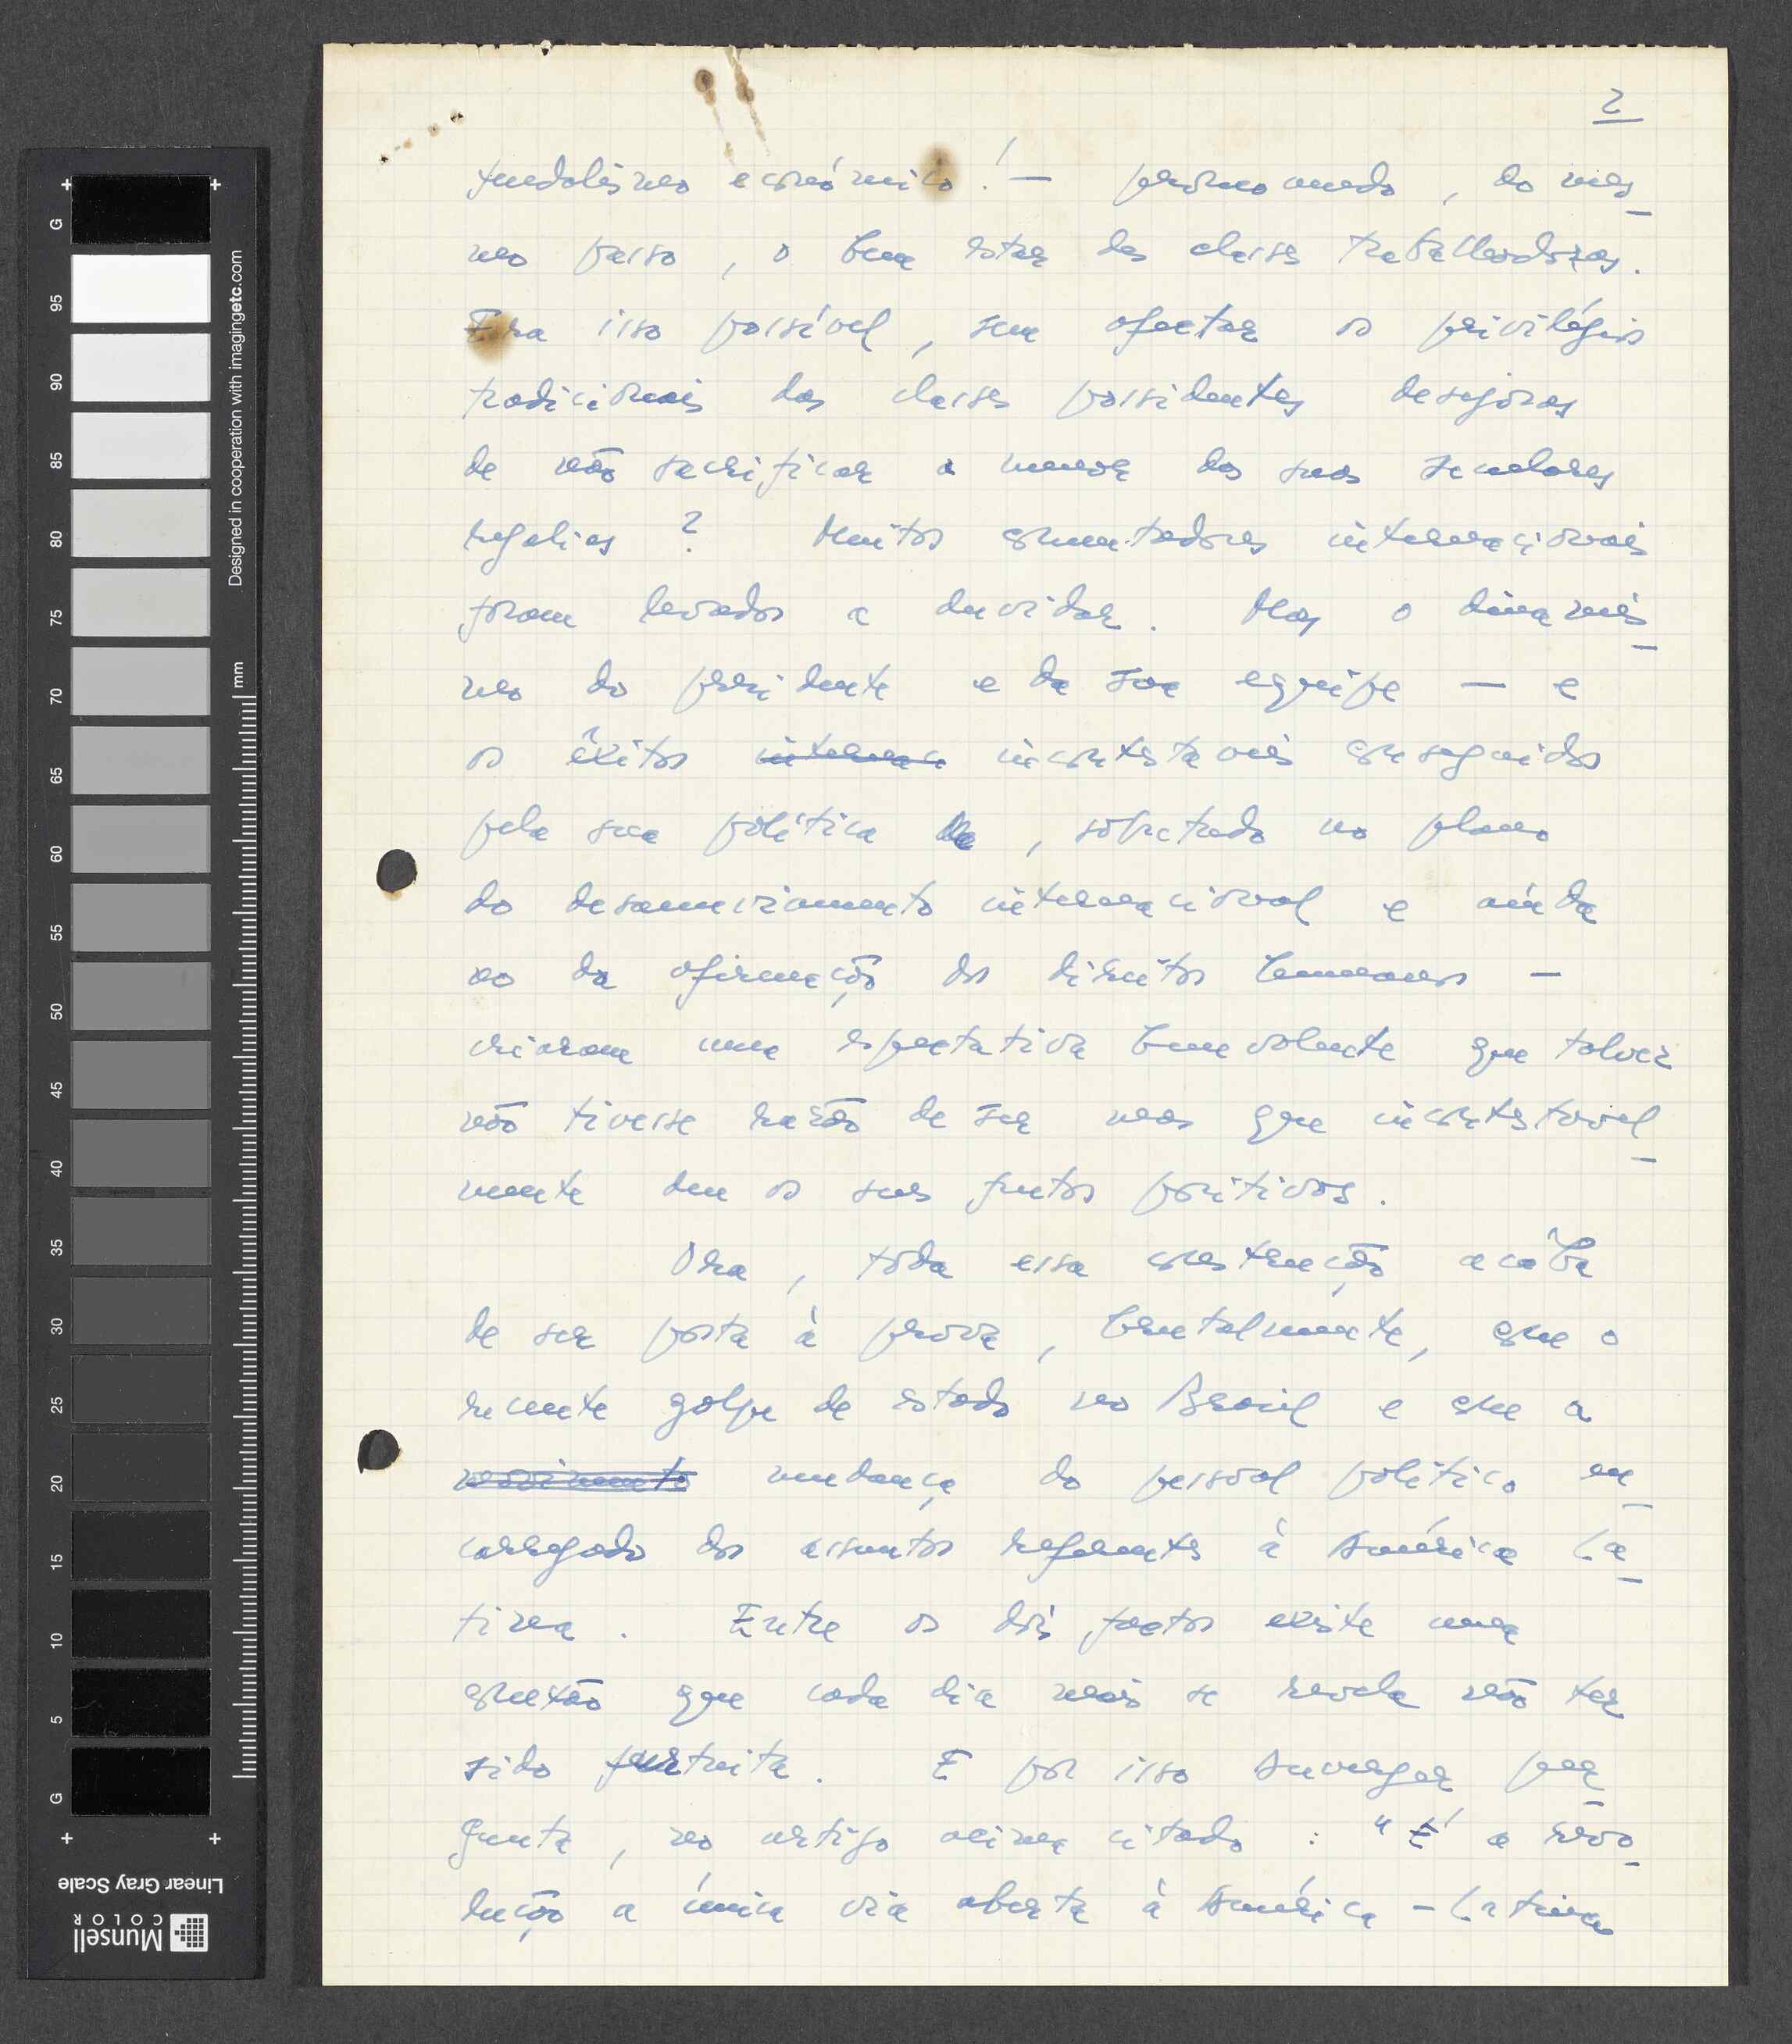 2
feudalismo económico! — promovendo, do mes-
mo passo, o bem estar das classes trabalhadoras.
Era isso possível, sem afectar os privilégios
tradicionais das classes possidentes desejosas
de não sacrificar a menor das suas seculares
regalias? Muitos comentadores internacionais
foram levados a duvidar. Mas o dinamis-
mo do presidente e da sua equipe — e
os êxitos internac incontestáveis conseguidos
pela sua política de, sobretudo no plano
do desanuviamento internacional e ainda
no da afirmação dos direitos humanos —
criaram uma espectativa benevolente que talvez
não tivesse razão de ser mas que incontestavel-
mente deu os seus frutos positivos.
Ora, toda essa construção acaba
de ser posta à prova, brutalmente, com o
recente golpe de estado no Brasil e com a
movimento mudança do pessoal político en-
carregado dos assuntos referentes à América La-
tina. Entre os dois factos existe uma
conexão que cada dia mais se revela não ter
sido fortuita. E por isso Duverger per-
gunta, no artigo acima citado: "É a revo-
lução a única via aberta à América-Latina
Designed in cooperation with imagingetc.com
mm
G
95
90
85
80
75
70
65
60
55
50
45
40
35
30
25
20
15
10
5
G
Linear Gray Scale
Munsell
COLOR